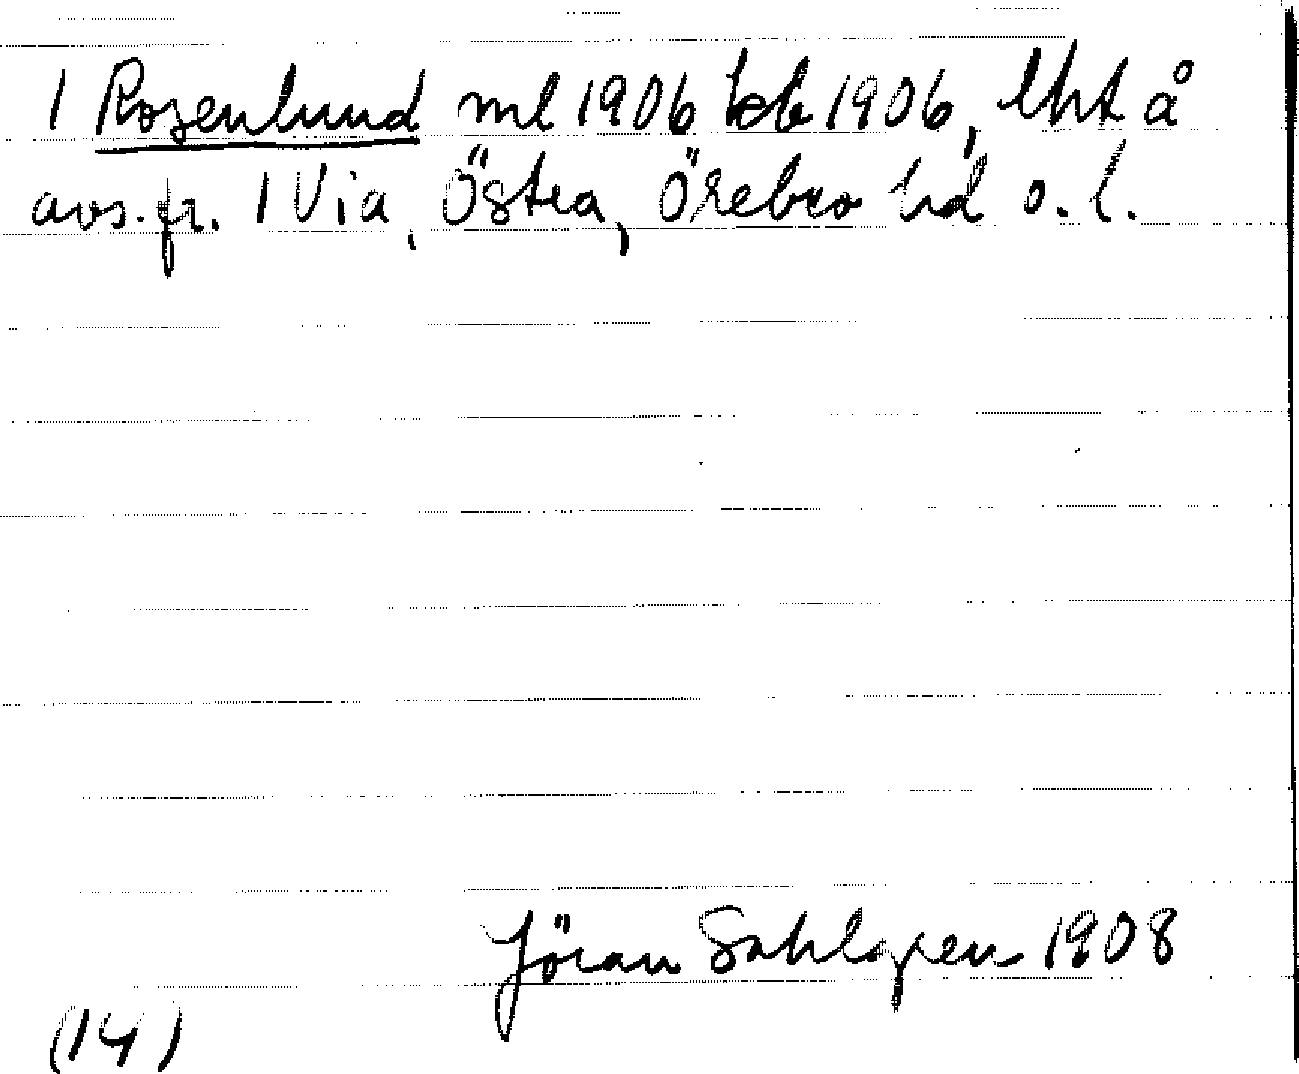 1 Rosenlund ml 1906 kb 1906, lht å
avs. fr. 1 Via, Östra, Örebro hd o. l.
Jöran Sahlgren 1908
(14)